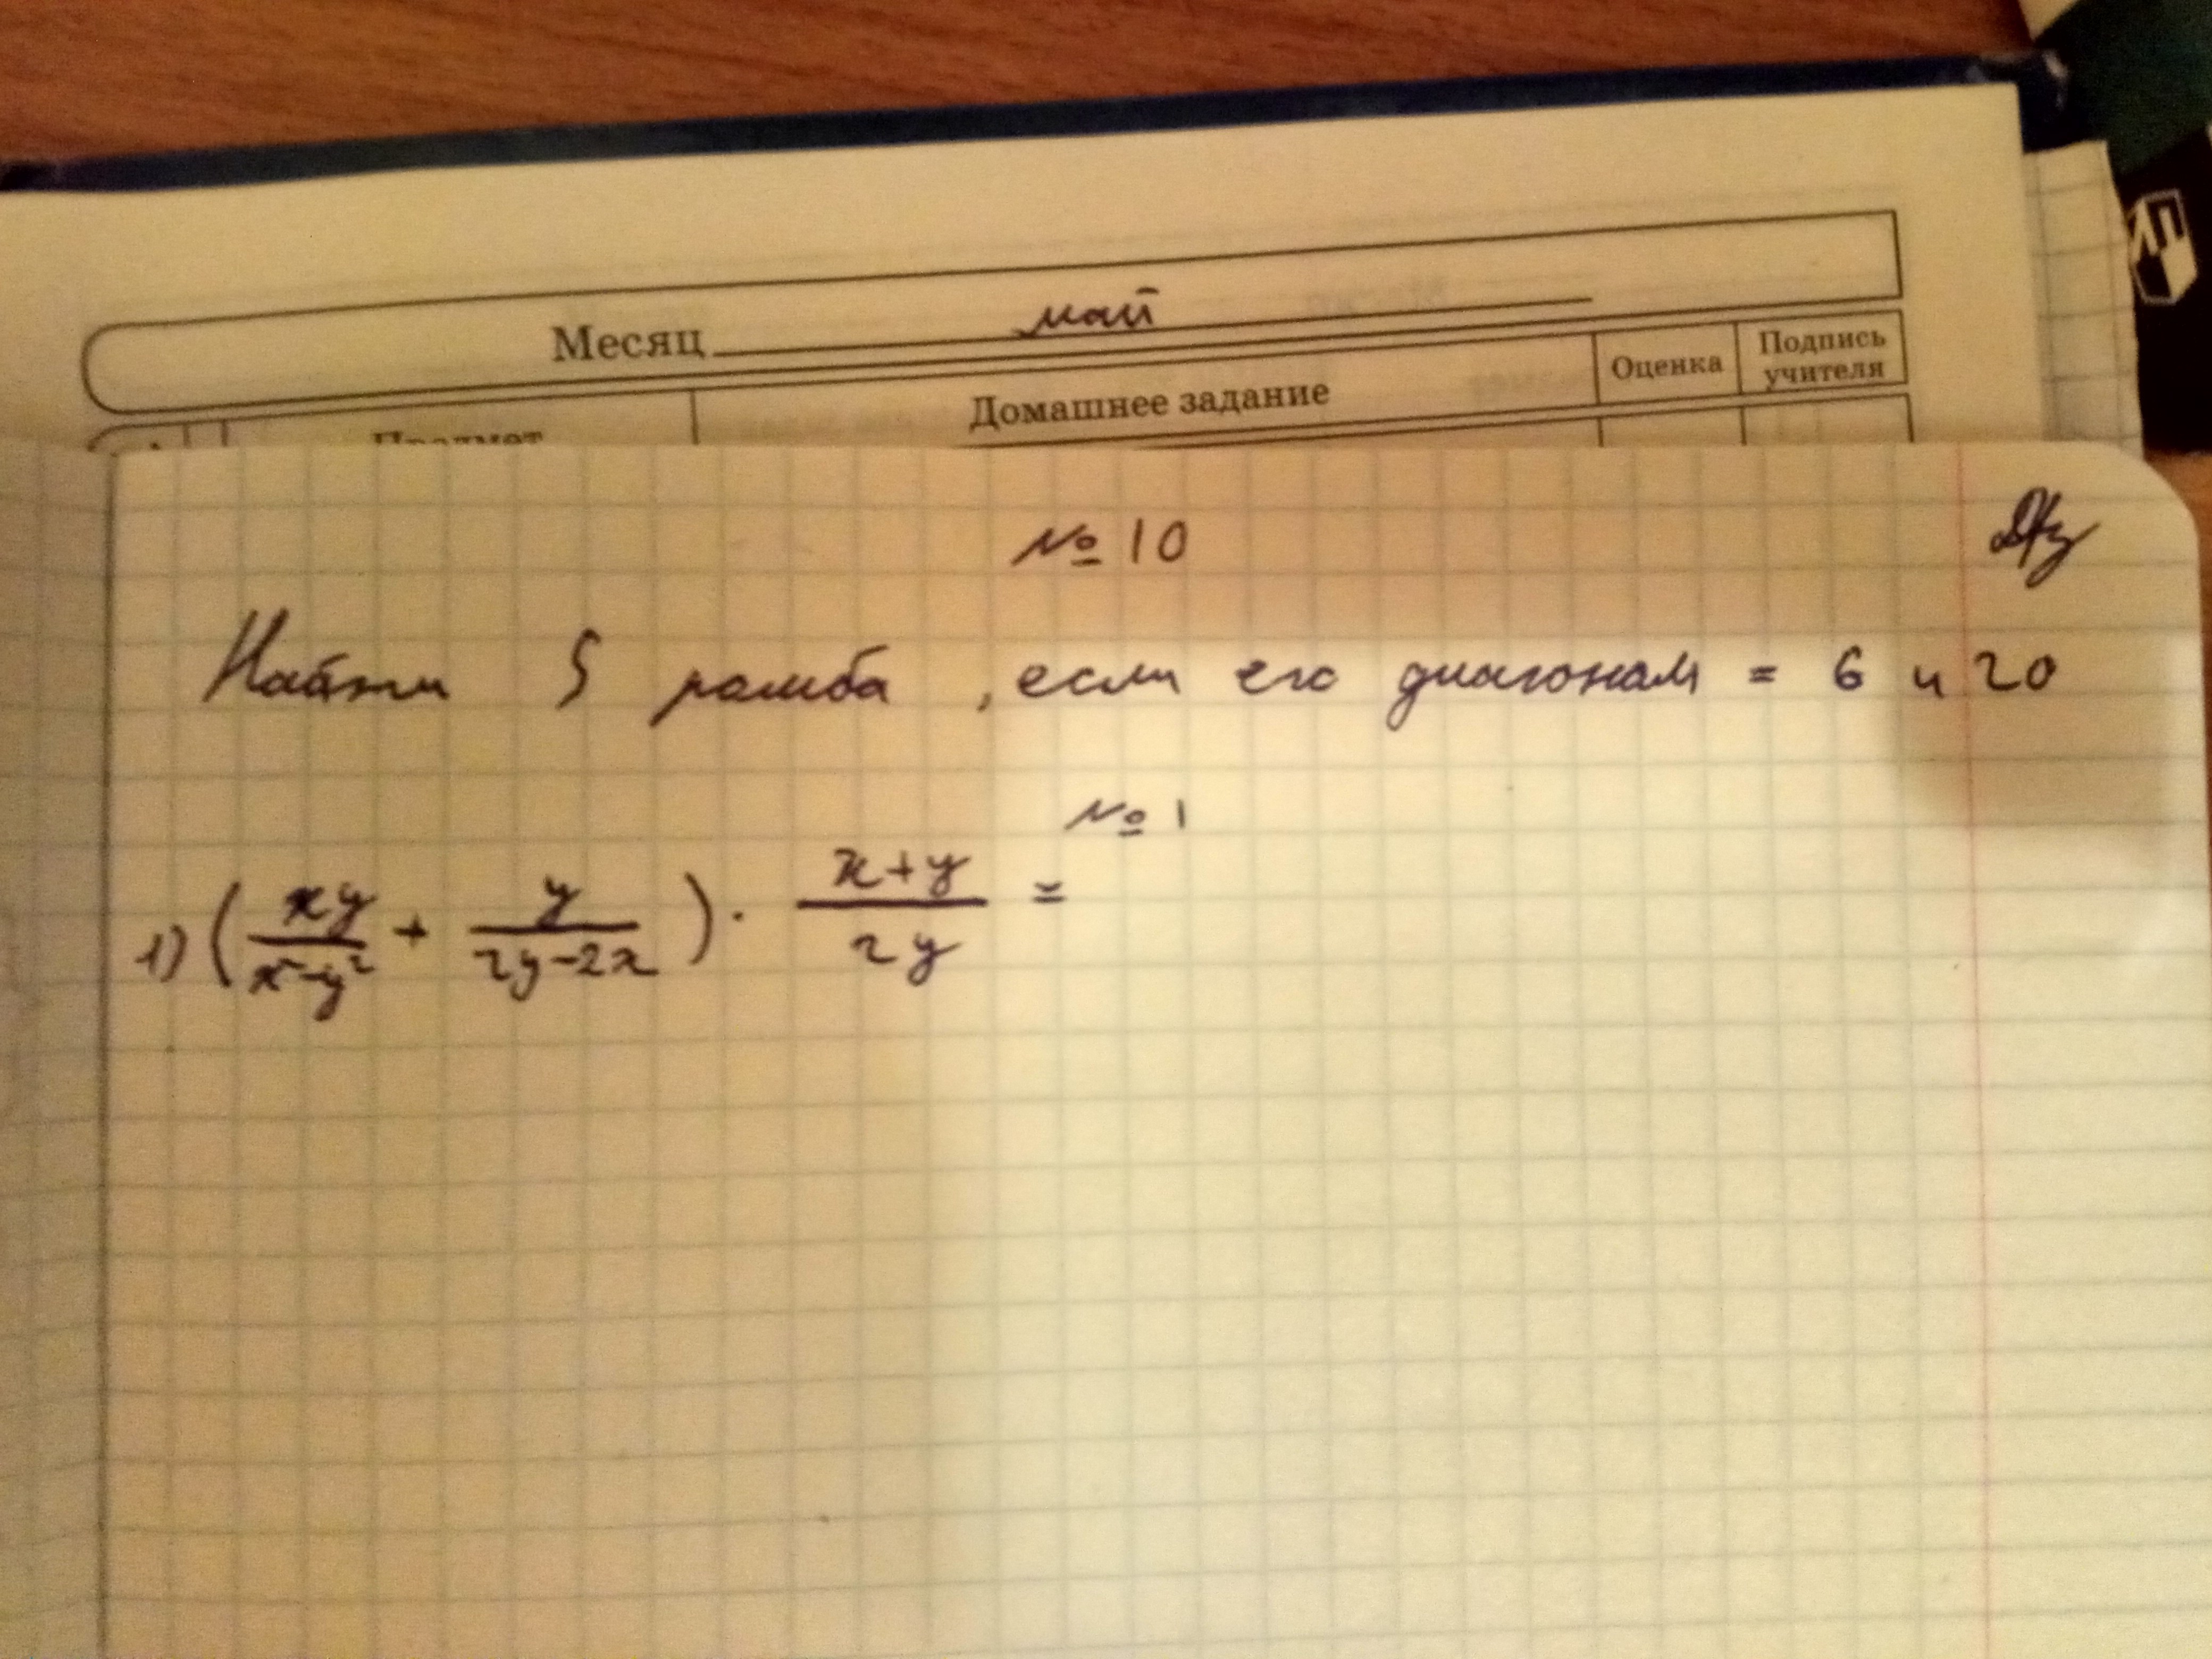 Месяц май
Домашнее задание Оценка Подпись учителя
Предмет
№ 10 Д/з
Найти S ромба, если его диагонали = 6 и 20
№ 1
1) (xy/(x²-y²) + y/(2y-2x)) · (x+y)/(2y) =